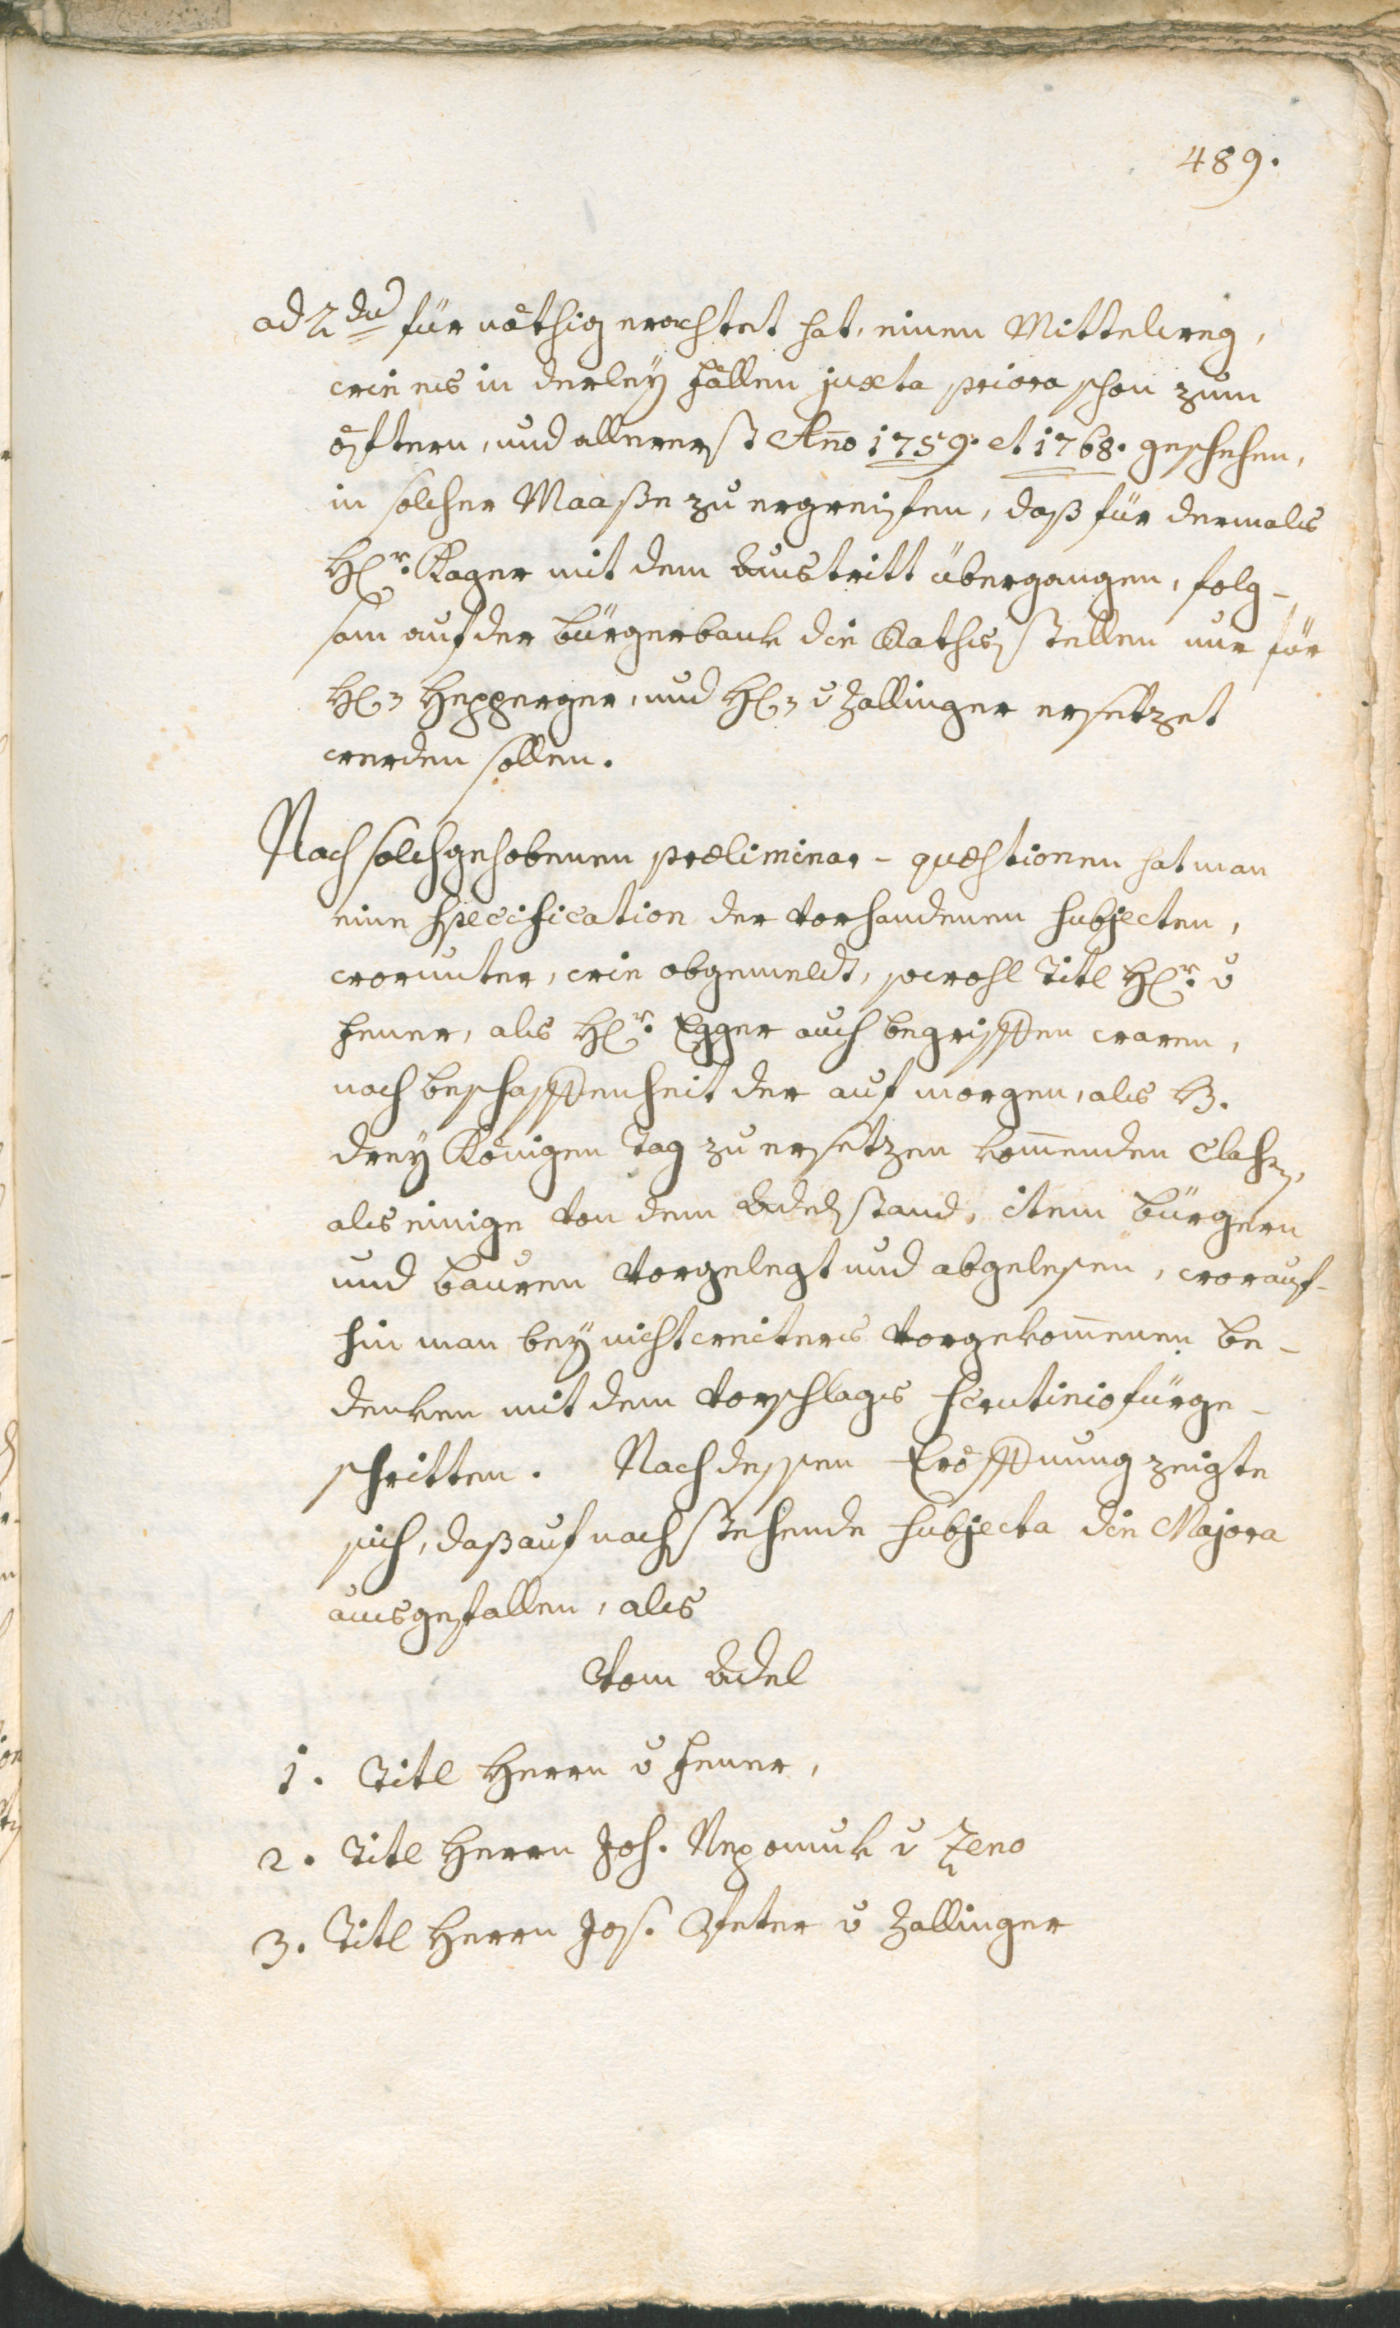 489.
ad 2dũ für nöthig erachtet hat, einen Mittelweg,
wie es in derley Fällen juxta priora schon zum
öftern, und allererst Año 1759. et 1768. geschehen,
in solcher Maaße zu ergreifen, daß für dermals
H(r. Rager mit dem Austritt übergangen, folg-
sam auf der Bürgerbank die Rathsstellen nur für
H(. Hepperger, und H(. v Zallinger ersetzet
werden sollen.
Nach solch gehobenen præliminar-quæstionen hat man
eine Specification der vorhandenen Subjecten,
worunter, wie obgemeldt, sowohl Titl H(r. v
Feuer, als H(r. Egger auch begriffen waren,
nach beschaffenheit der auf morgen, als H.
drey Königen Tag zu ersetzen kom̃enden Classen,
als einige von dem Adelsstand, item bürgern
und bauren vorgelegt und abgelesen, worauf-
hin man bey nicht weiters vorgekom̃enen be-
denken mit dem vorschlags Scrutinio fürge-
schritten. Nach dessen Eröffnung zeigte
sich, daß auf nachstehende Subjecta die Majora
ausgefallen, als
Vom Adel
1. Titl Herrn v Feuer,
2. Titl Herrn Joh. Nepomuk v Zeno
3. Titl Herrn Jos. Peter v Zallinger